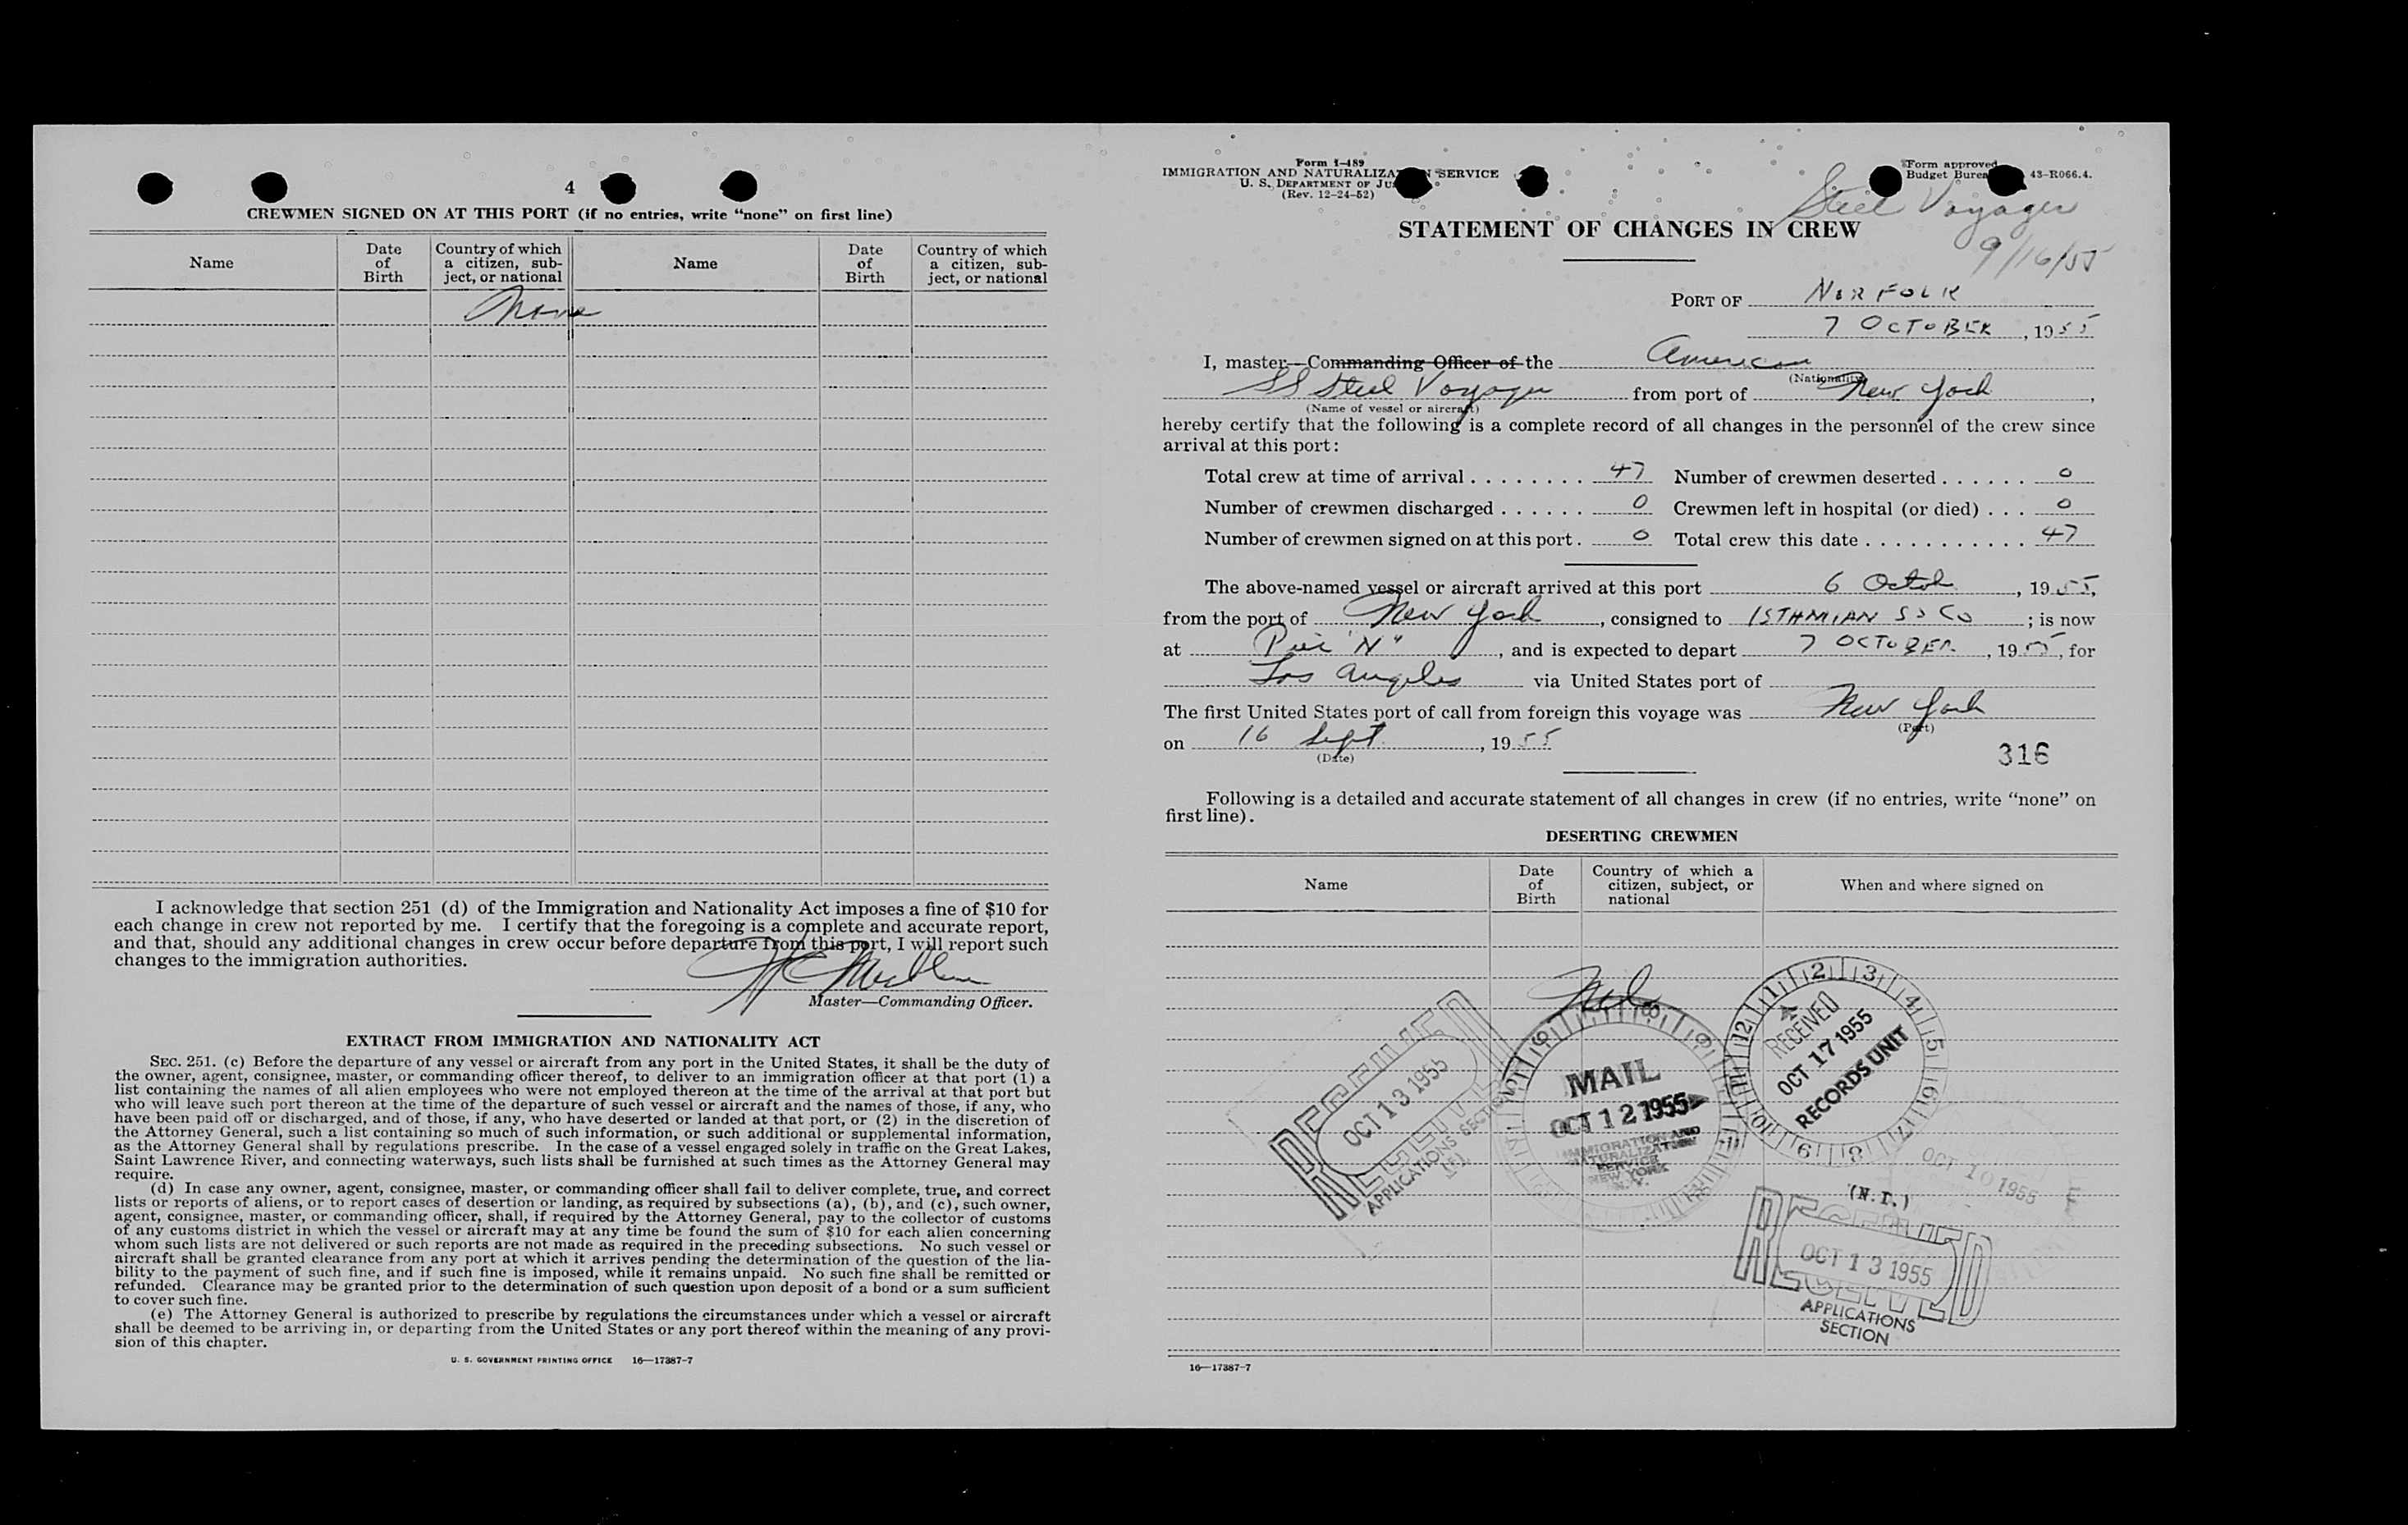 4
CREWMEN SIGNED ON AT THIS PORT (if no entries, write “none” on first line)
Name
Date of Birth
Country of which a citizen, subject, or national
Name
Date of Birth
Country of which a citizen, sub-ject, or national
None
I acknowledge that section 251 (d) of the Immigration and Nationality Act imposes a fine of $10 for
each change in crew not reported by me. I certify that the foregoing is a complete and accurate report,
and that, should any additional changes in crew occur before departure from this port, I will report such
changes to the immigration authorities.
Master—Commanding Officer.
EXTRACT FROM IMMIGRATION AND NATIONALITY ACT
SEC. 251. (c) Before the departure of any vessel or aircraft from any port in the United States, it shall be the duty of
the owner, agent, consignee, master, or commanding officer thereof, to deliver to an immigration officer at that port (1) a
list containing the names of all alien employees who were not employed thereon at the time of the arrival at that port but
who will leave such port thereon at the time of the departure of such vessel or aircraft and the names of those, if any, who
have been paid off or discharged, and of those, if any, who have deserted or landed at that port, or (2) in the discretion of
the Attorney General, such a list containing so much of such information, or such additional or supplemental information,
as the Attorney General shall by regulations prescribe. In the case of a vessel engaged solely in traffic on the Great Lakes,
Saint Lawrence River, and connecting waterways, such lists shall be furnished at such times as the Attorney General may
require.
(d) In case any owner, agent, consignee, master, or commanding officer shall fail to deliver complete, true, and correct
lists or reports of aliens, or to report cases of desertion or landing, as required by subsections (a), (b), and (c), such owner,
agent, consignee, master, or commanding officer, shall, if required by the Attorney General, pay to the collector of customs
of any customs district in which the vessel or aircraft may at any time be found the sum of $10 for each alien concerning
whom such lists are not delivered or such reports are not made as required in the preceding subsections. No such vessel or
aircraft shall be granted clearance from any port at which it arrives pending the determination of the question of the lia-
bility to the payment of such fine, and if such fine is imposed, while it remains unpaid. No such fine shall be remitted or
refunded. Clearance may be granted prior to the determination of such question upon deposit of a bond or a sum sufficient
to cover such fine.
(e) The Attorney General is authorized to prescribe by regulations the circumstances under which a vessel or aircraft
shall be deemed to be arriving in, or departing from the United States or any port thereof within the meaning of any provi-
sion of this chapter.
U. S. GOVERNMENT PRINTING OFFICE 16—17387-7
Form I-489
IMMIGRATION AND NATURALIZATION SERVICE
U. S. DEPARTMENT OF
(Rev. 12-24-52)
Form approved
Budget Bureau 43-R066.4.
Steel Voyager
9/16/55
STATEMENT OF CHANGES IN CREW
PORT OF NORFOLK
7 OCTOBER, 1955
I, master—Commanding Officer of the American
(Nationality)
SS Steel Voyager from port of New York,
(Name of vessel or aircraft)
hereby certify that the following is a complete record of all changes in the personnel of the crew since
arrival at this port:
Total crew at time of arrival . . . . . . . . 47 Number of crewmen deserted . . . . . . 0
Number of crewmen discharged . . . . . . 0 Crewmen left in hospital (or died) . . . 0
Number of crewmen signed on at this port . 0 Total crew this date . . . . . . . . . . . 47
The above-named vessel or aircraft arrived at this port 6 Octob, 1955,
from the port of New York, consigned to ISTHMIAN SS CO; is now
at Pier "N", and is expected to depart 7 OCTOBER, 1955, for
Los Angeles via United States port of
The first United States port of call from foreign this voyage was New York
(Port)
on 16 Sept., 1955
(Date)
316
Following is a detailed and accurate statement of all changes in crew (if no entries, write “none” on
first line).
DESERTING CREWMEN
Name
Date of Birth
Country of which a citizen, subject, or national
When and where signed on
RECEIVED
OCT 13 1955
APPLICATIONS SECTION
MAIL
OCT 12 1955
IMMIGRATION AND
NATURALIZATION
SERVICE
NEW YORK
N.Y.
12 1 2 3 4 5 6 7 8 9 10 11
RECEIVED
OCT 17 1955
RECORDS UNIT
OCT 10 1955
(N.I.)
RECEIVED
OCT 13 1955
APPLICATIONS
SECTION
16—17387-7